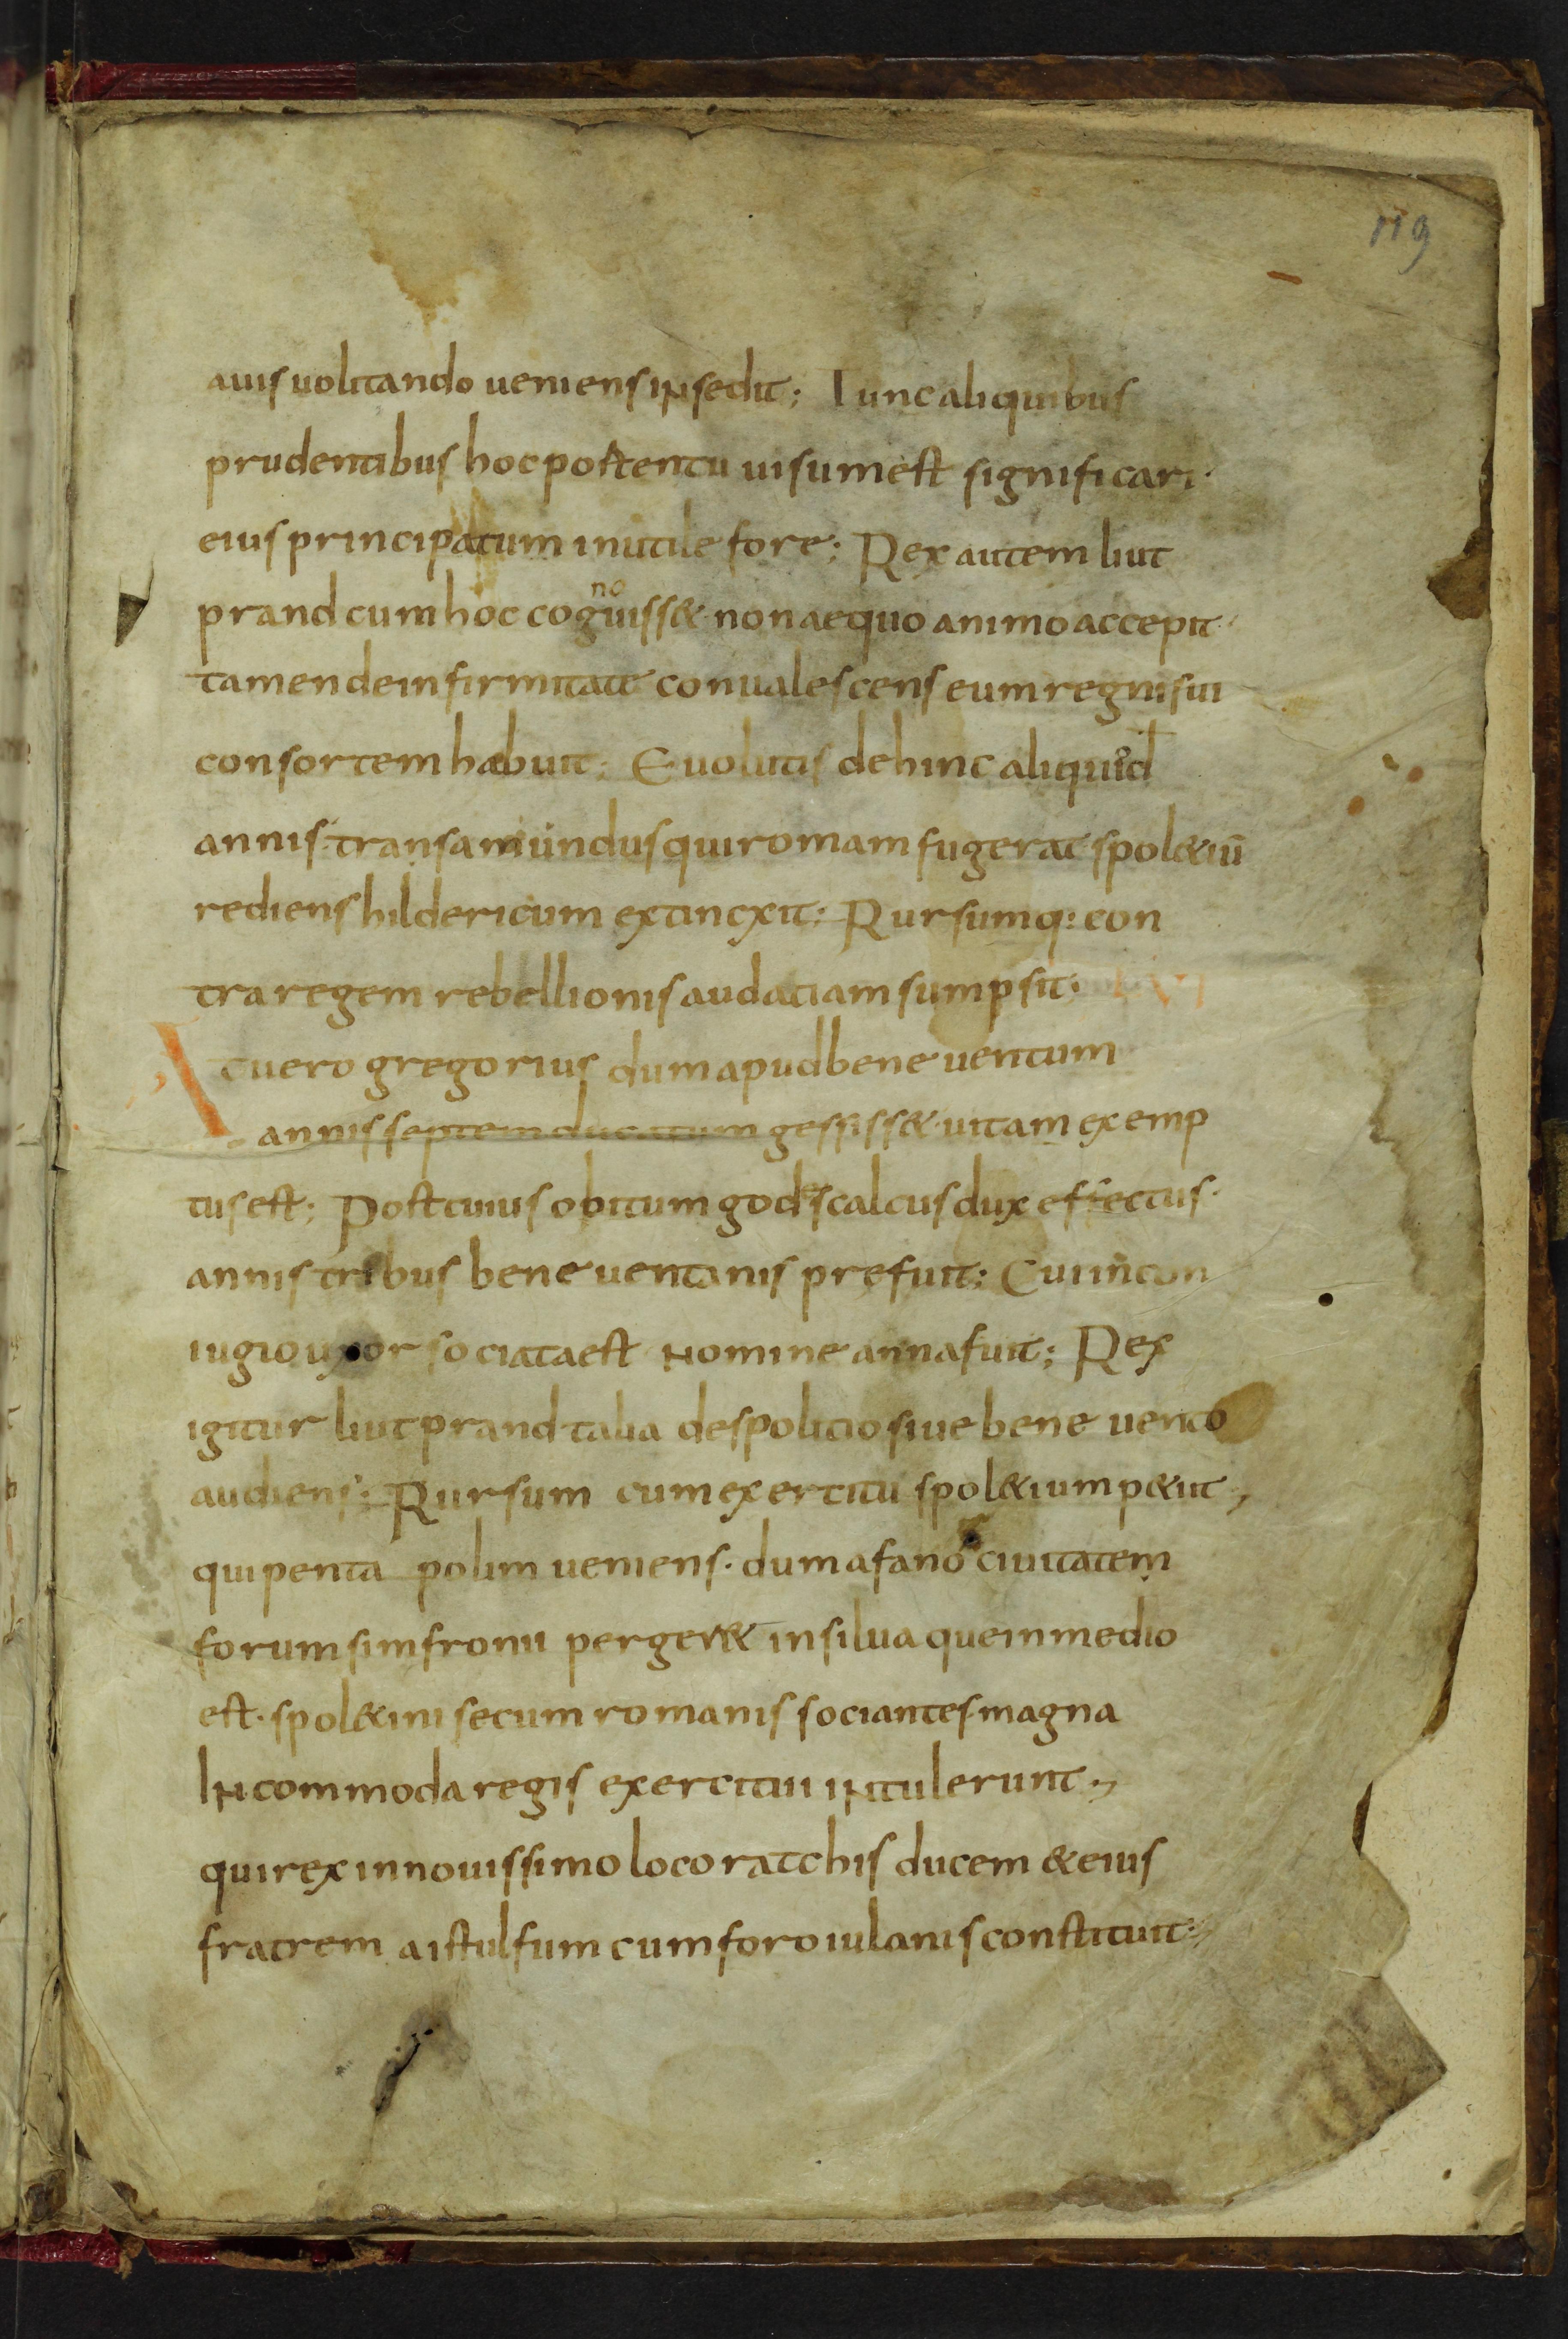 119
auis uolitando ueniens insedit; Tunc aliquibus
prudentibus hoc postentu uisum est significari·
eius principatum inutile fore; Rex autem liut
prand cum hoc cognouiss& non aequo animo accepit·
tamen de infirmitate conualescens eum regni sui
consortem habuit; Euolutis dehinc aliquod
annis· transamundus qui romam fugerat spol&iū
rediens hildericum extincxit; Rursumq: con
tra regem rebellionis audaciam sumpsit·
At uero gregorius dum apud beneuentum
annis septem ducatum gessiss& uitam exemp
tus est; Post cuius obitum godescalcus dux effectus·
annis tribus beneuentanis prefuit; Cui in con
iugio uxor sociata est nomine anna fuit; Rex
igitur liutprand talia de spolitio siue beneuento
audiens; Rursum cum exertitu spol&ium p&iit,
qui penta polim ueniens· dum a fano ciuitatem
forum simfronii perger& in silua que in medio
est· spol&ini se cum romanis sociantes magna
Incommoda regis exertitui intulerunt·,
qui rex in nouissimo loco ratchis ducem & eius
fratrem aistulfum cum foroiulanis constituit·